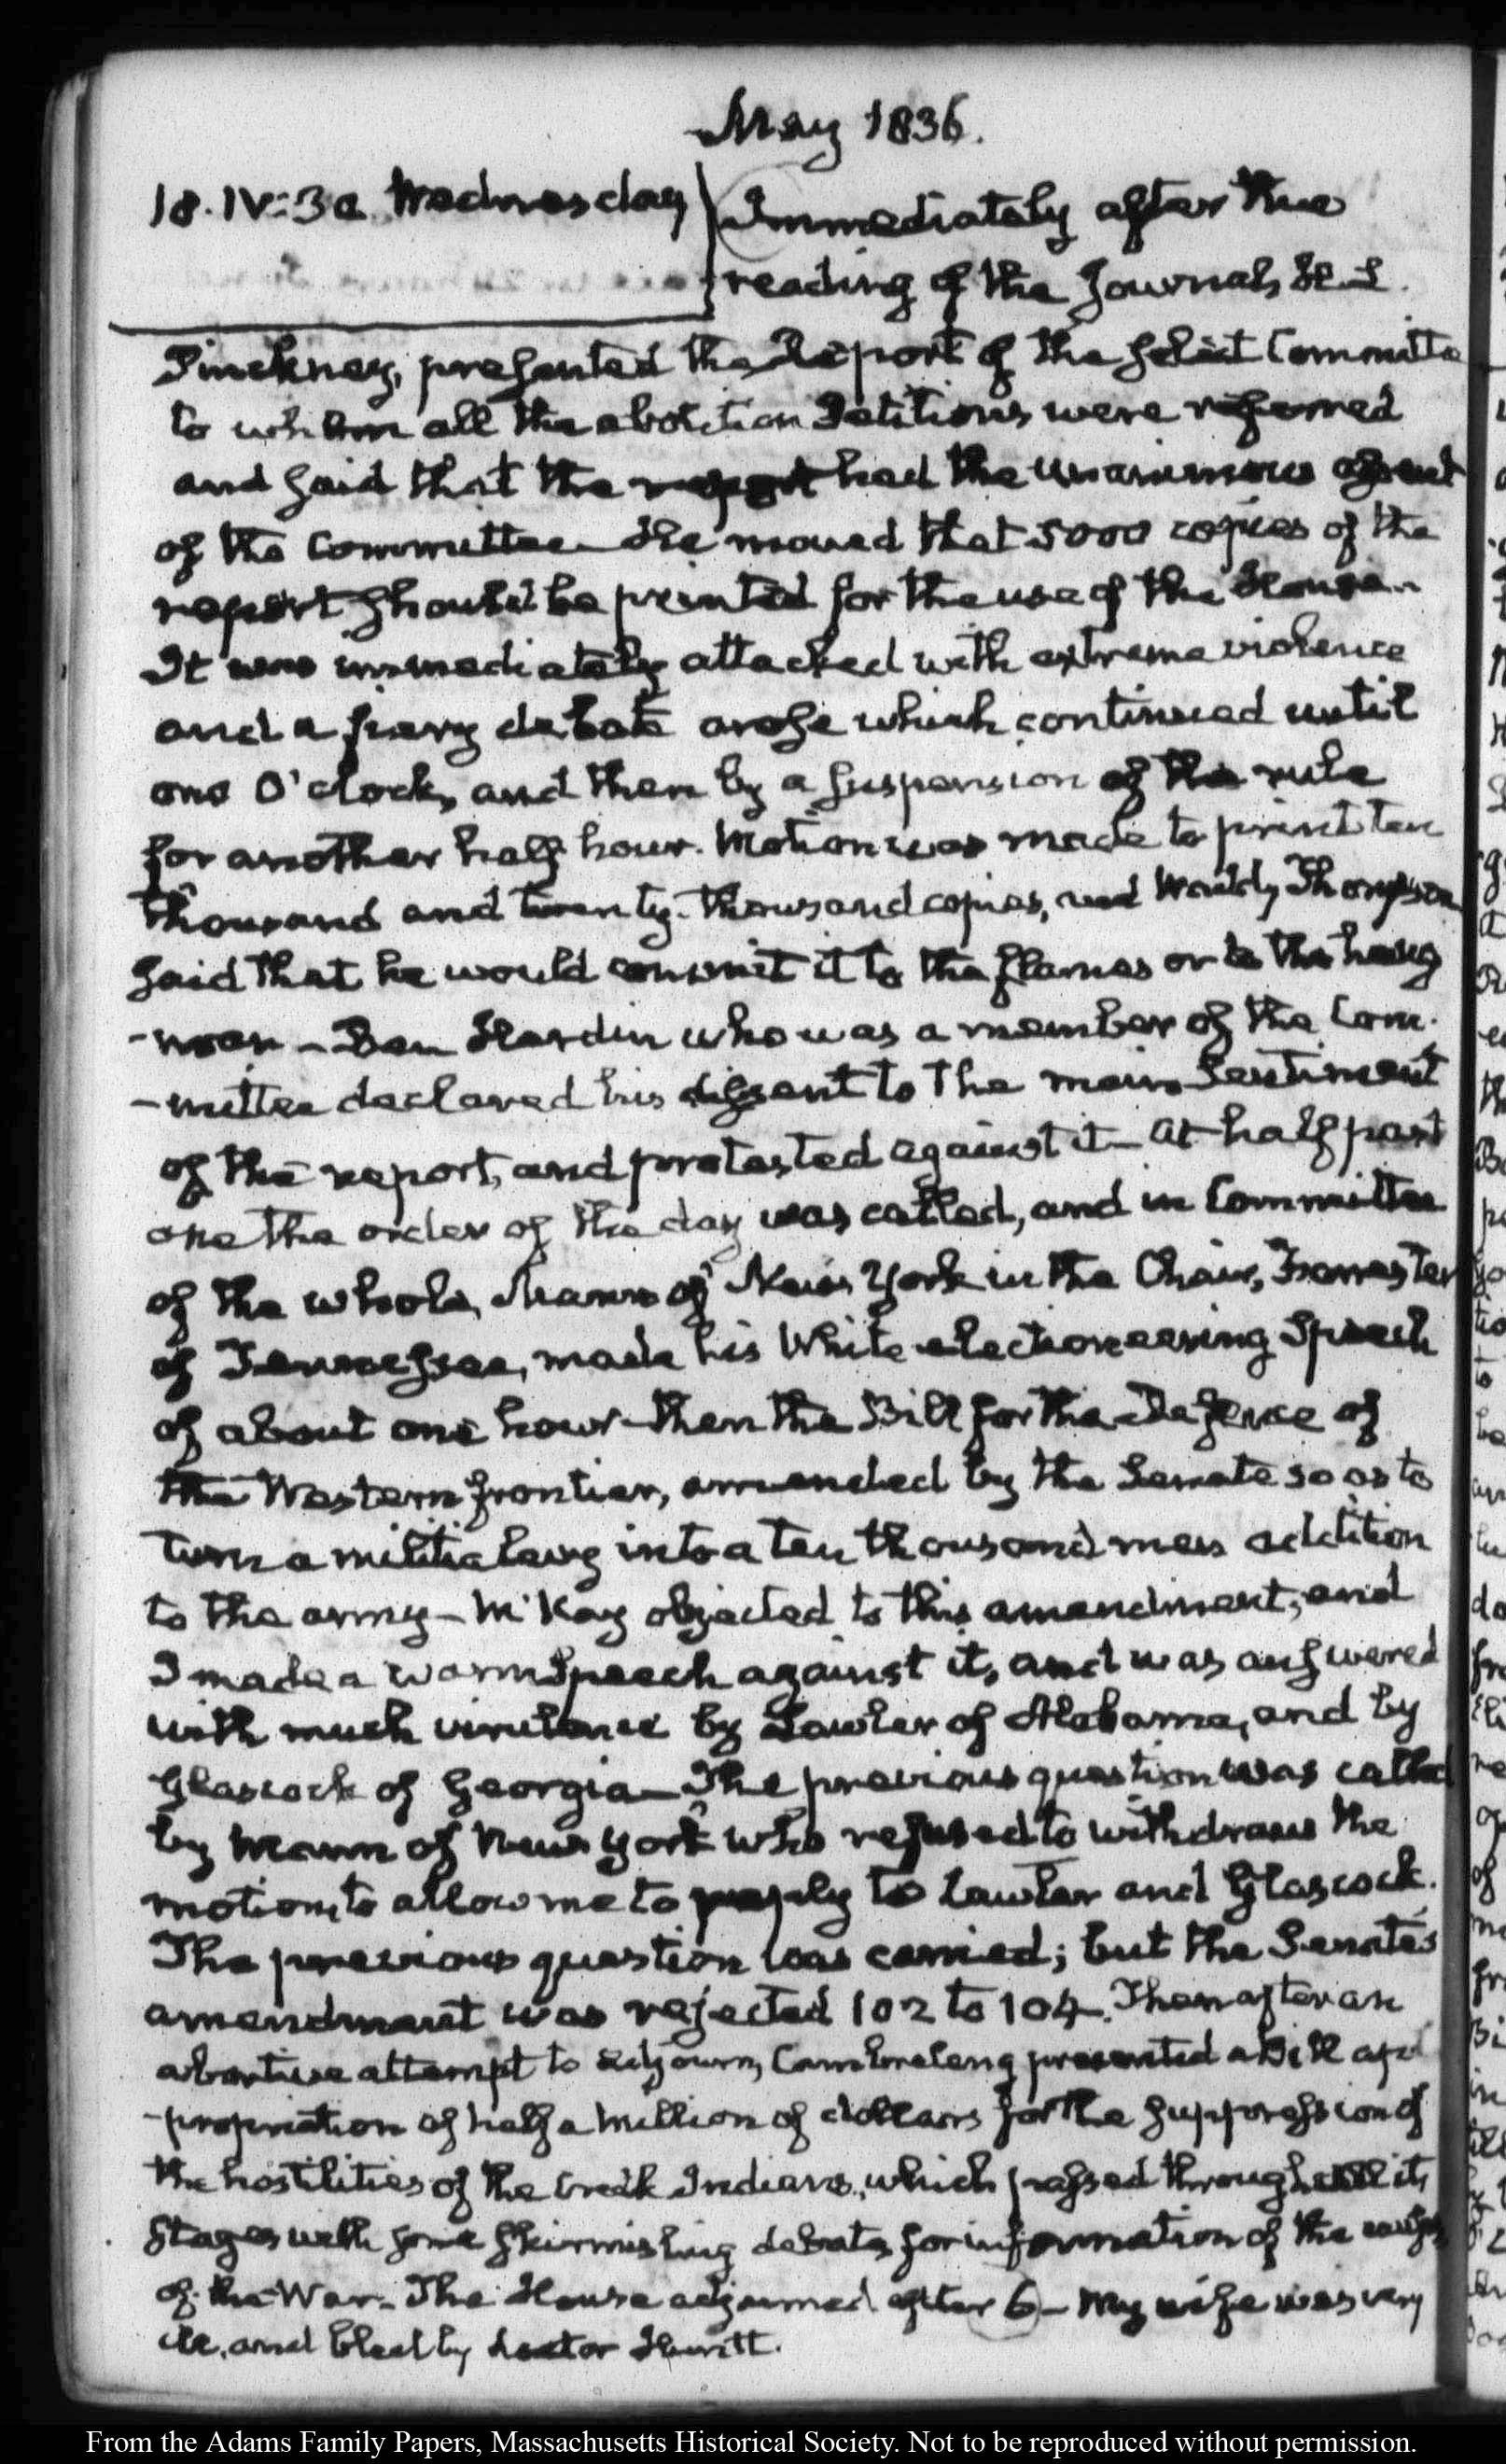 May 1836.
18. IV:30. Wednesday
Immediately after the
reading of the Journal, H. L.
Pinckney, presented the Report of the Select Committee
to whom all the abolition Petitions were referred
and said that the report had the unanimous assent
of the Committee — He moved that 5000 copies of the
report should be printed for the use of the House —
It was immediately attacked with extreme violence
and a fiery debate arose which continued until
one O'clock, and then by a suspension of the rule
for another half hour. Motion was made to print ten
thousand and twenty thousand copies, and Waddy Thompson
said that he would commit it to the flames or to the hang
-man — Ben Hardin who was a member of the Com-
-mittee declared his dissent to the main sentiment
of the report, and protested against it — At half past
one the order of the day was called, and in Committee
of the whole, Mann of New York in the Chair, Forrester
of Tennessee, made his White electioneering Speech
of about one hour — then the Bill for the Defence of
the Western frontier, amended by the Senate so as to
turn a militia levy into a ten thousand men addition
to the army — M'Kay objected to this amendment, and
I made a warm Speech against it, and was answered
with much virulence by Lawler of Alabama, and by
Glascock of Georgia — The previous question was called
by Mann of New York who refused to withdraw the
motion, to allow me to reply to Lawler and Glascock.
The previous question was carried; but the Senate's
amendment was rejected 102 to 104. Then after an
abortive attempt to adjourn, Cambreleng presented a Bill app
-propriation of half a Million of dollars for the suppression of
the hostilities of the Creek Indians, which passed through all its
stages with some skirmishing debate, for information of the causes
of the War. The House adjourned after 6 — My wife was very
ill, and bled by doctor Huntt.
From the Adams Family Papers, Massachusetts Historical Society. Not to be reproduced without permission.